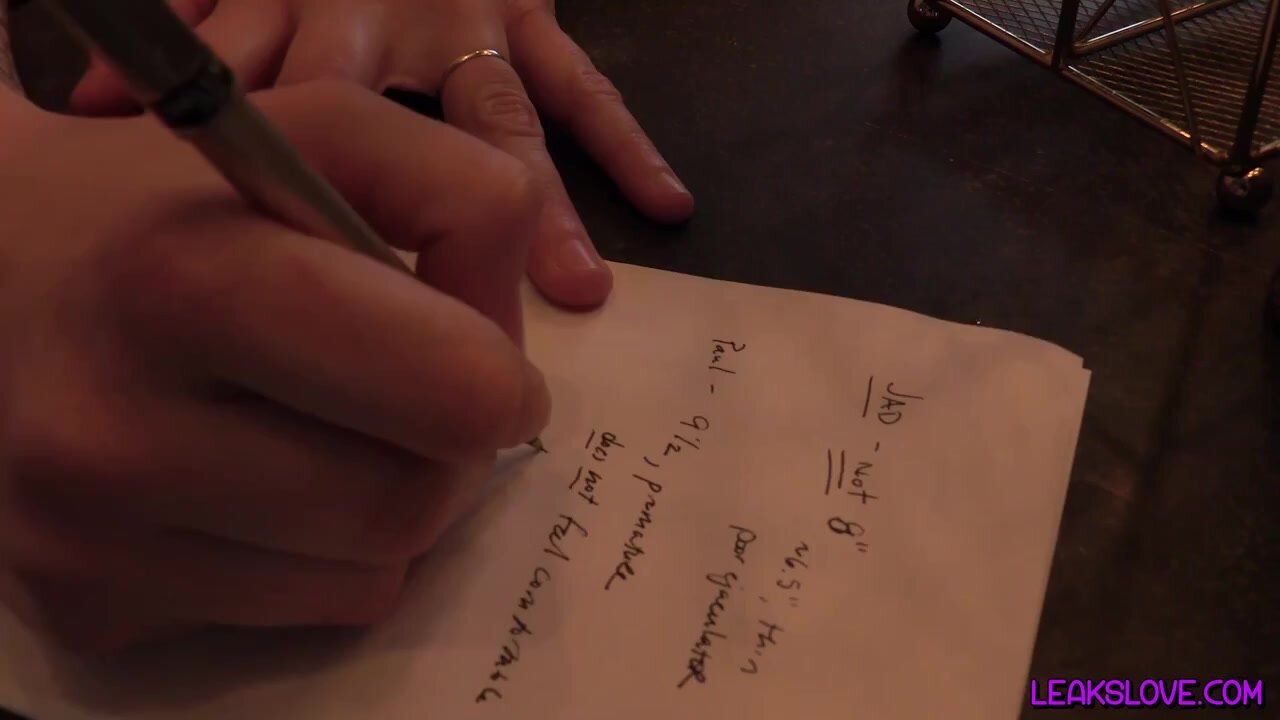 JAD - Not 8"
~6.5", thin
poor ejaculator
Paul - 9 1/2, premature
does not feel comfortable
LEAKSLOVE.COM